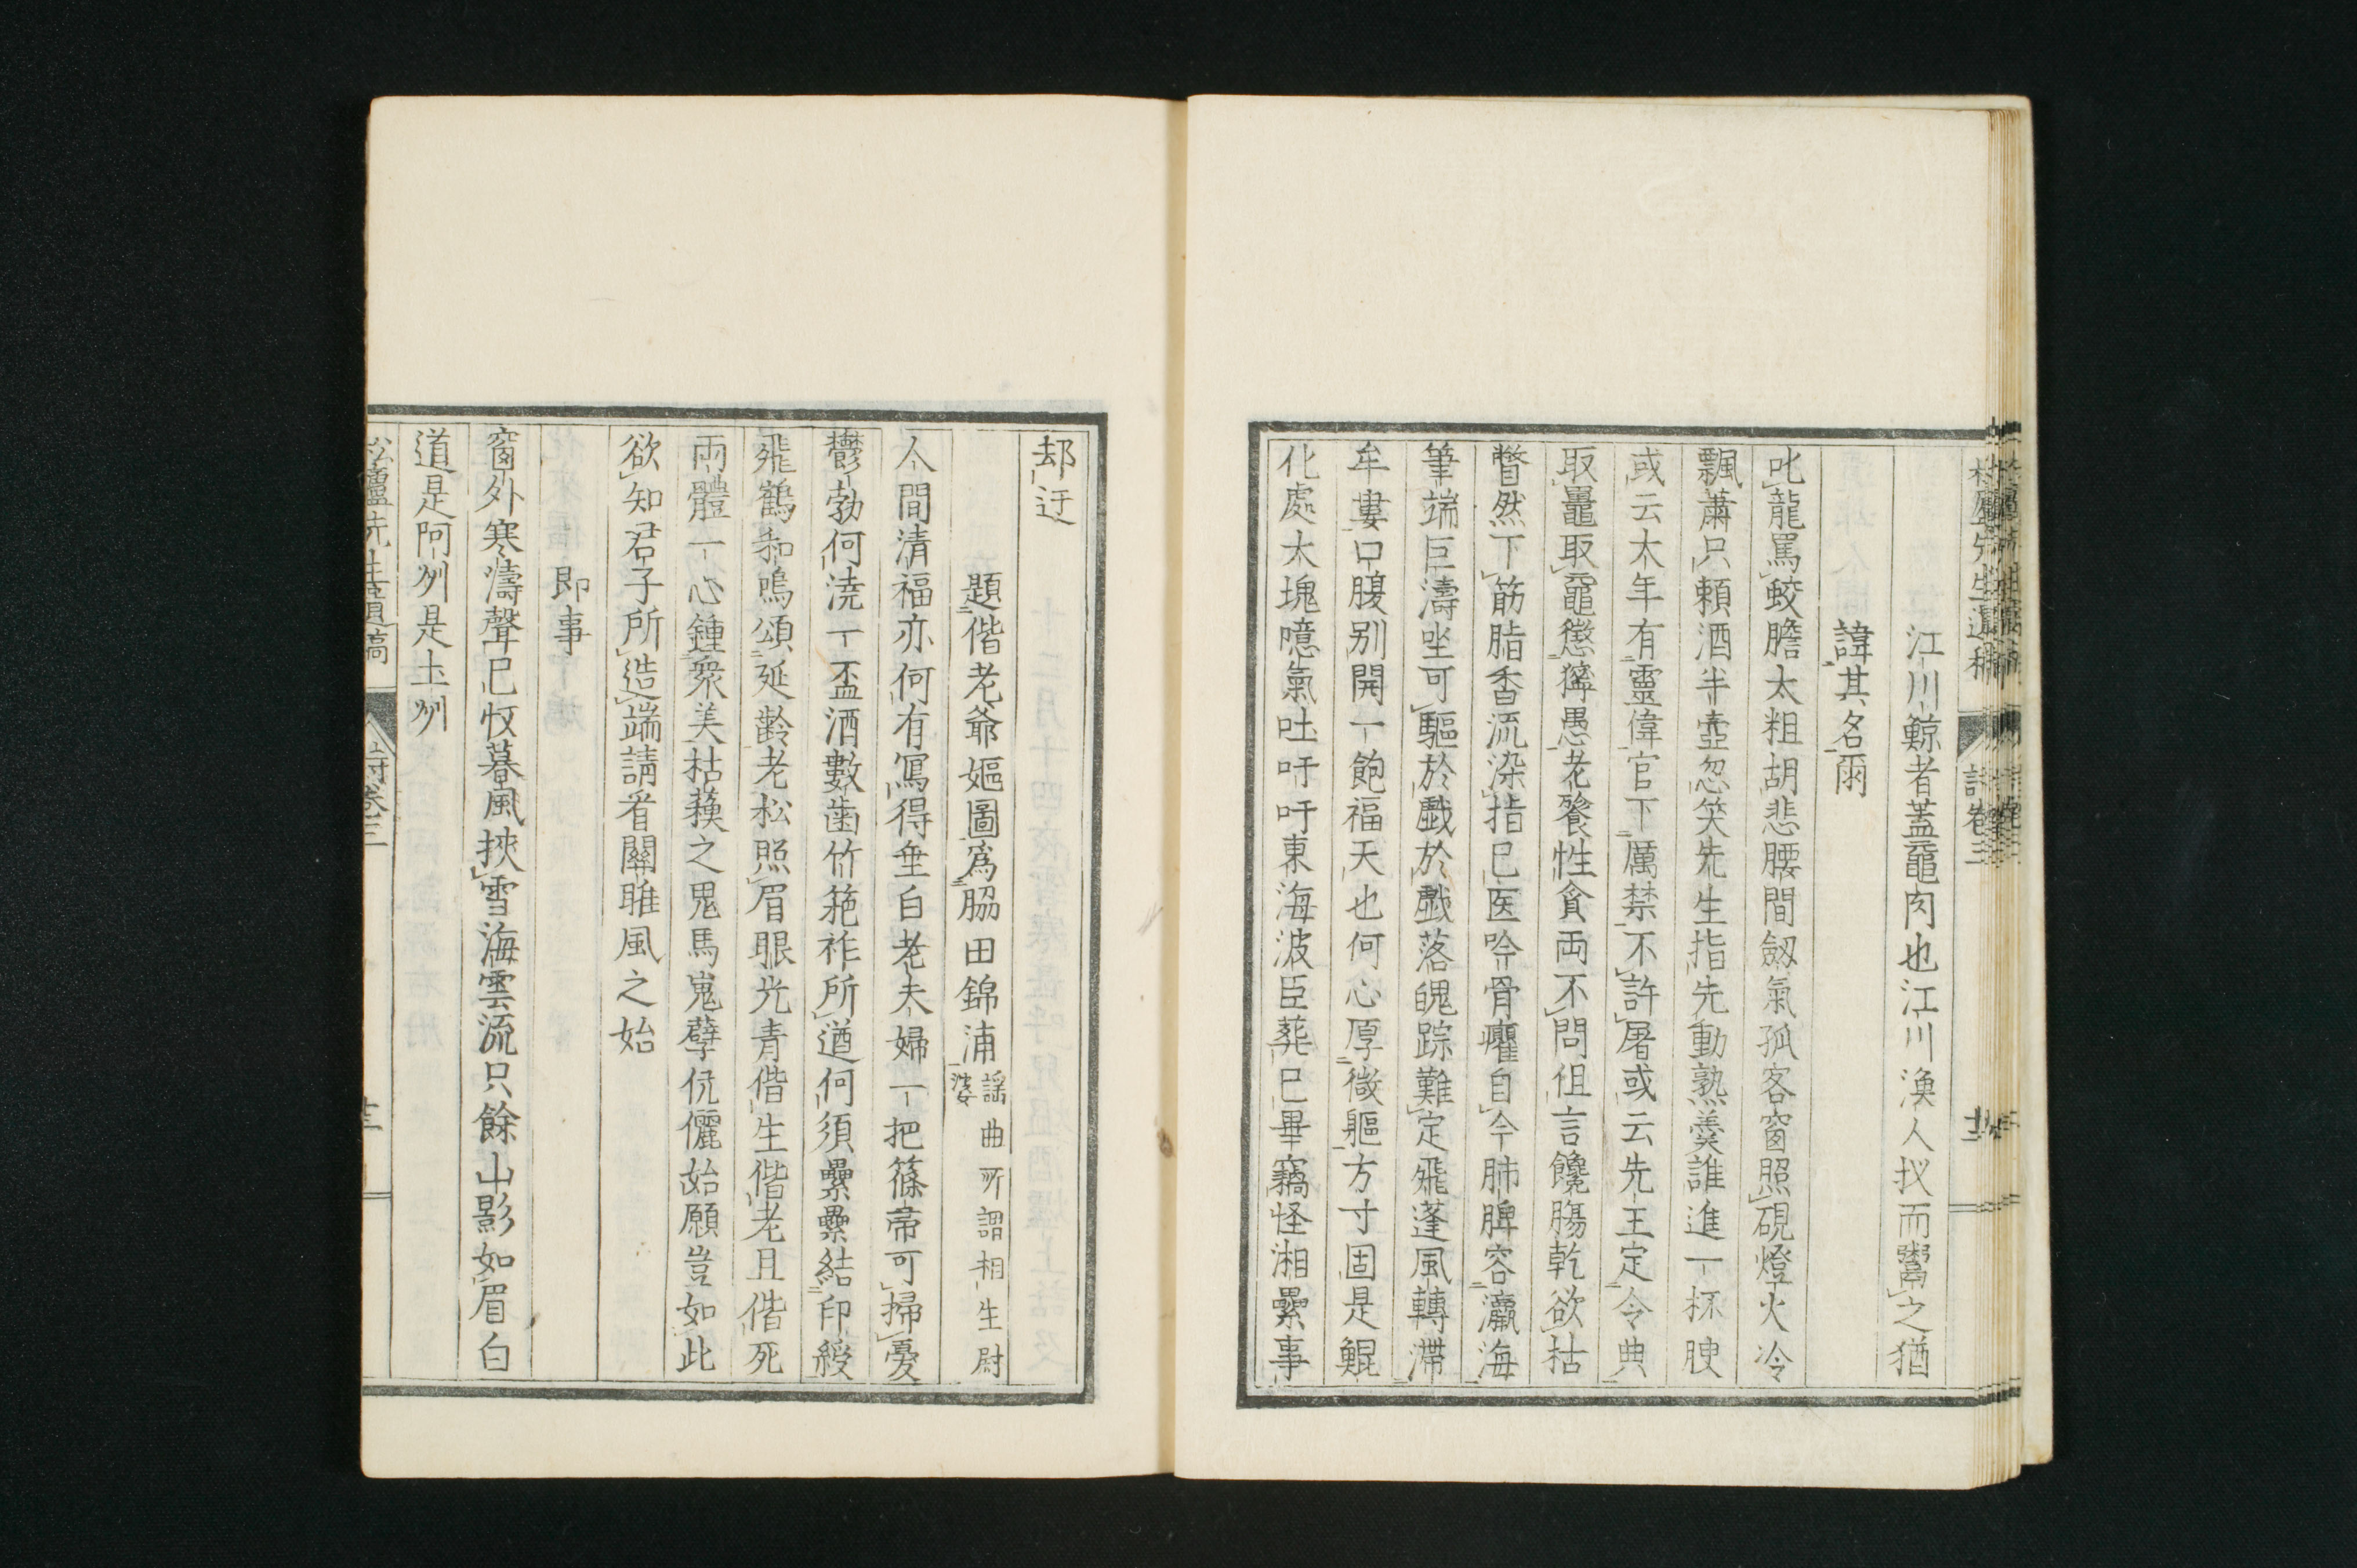 江川鯨者蓋黿肉也江川漁人扠而鬻之猶
諱其名爾
叱龍罵蛟膽太粗胡悲腰間劔氣孤客窗照硯燈火冷
飄蕭只頼酒半壺忽笑先生指先動熟羹誰進一杯腴
或云大年有靈偉官下厲禁不許屠或云先王定令典
取鼉取黿懲獰愚老餮性貪両不問但言饞腸乾欲枯
瞥然下筋脂香流染指已医吟骨癯自今肺脾容瀛海
筆端巨濤坐可驅於戯於戯落魄踪難定飛蓬風轉滯
牟婁口腹别開一飽福天也何心厚微軀方寸固是鯤
化處大塊噫氣吐吁吁東海波臣葬已畢竊怪湘纍事
却迂
題偕老爺嫗圖爲脇田錦浦
謡曲所謂相生尉
婆
人間清福亦何有寫得垂白老夫婦一把篠帚可掃憂
鬱勃何澆一盃酒數歯竹筢祚所遒何須纍纍結印綬
飛鶴和鳴頌延齡老松照眉眼光青偕生偕老且偕死
両體一心鍾衆美枯藜之鬼馬嵬孽伉儷始願豈如此
欲知君子所造端請看關雎風之始
即事
窗外寒濤聲已收暮風挾雪海雲流只餘山影如眉白
道是阿州是土州
松廬先生遺稿
詩卷三